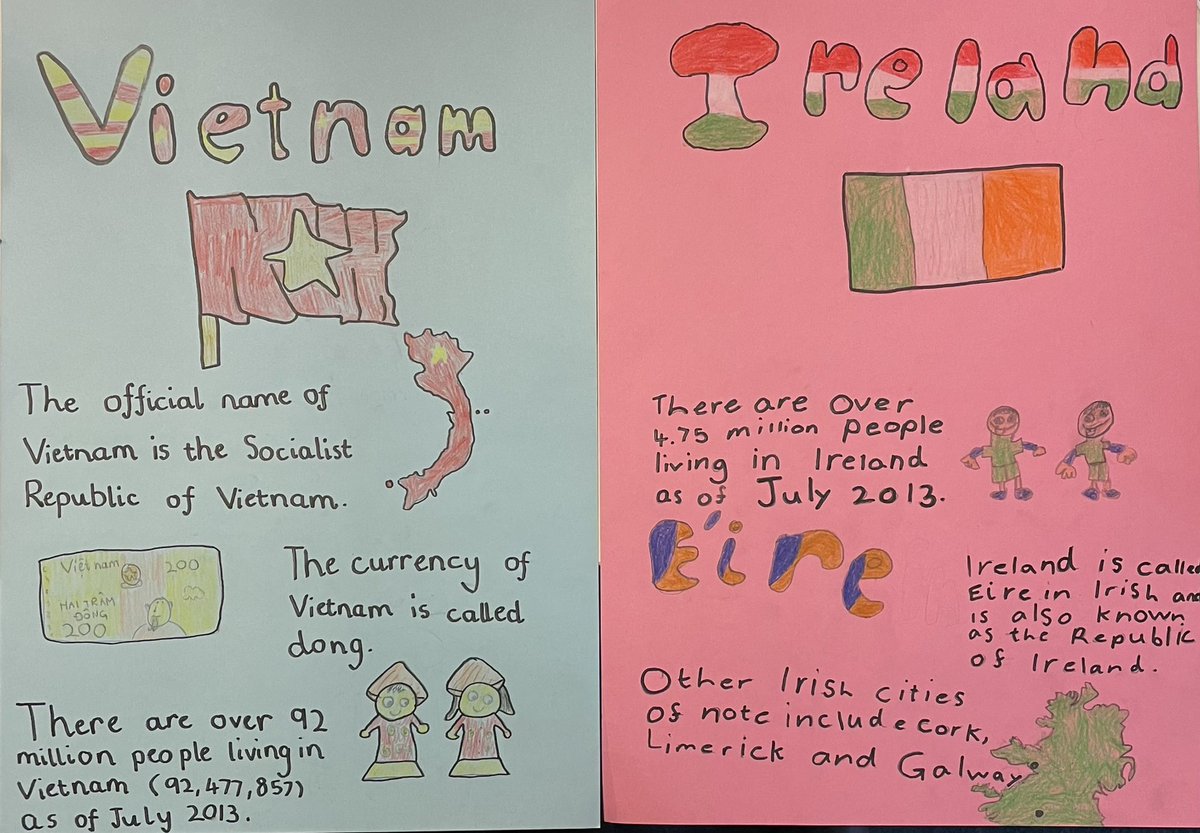 Vietnam
The official name of
Vietnam is the Socialist
Republic of Vietnam.
Việt nam 200
HAI TRĂM
ĐỒNG
200
The currency of
Vietnam is called
dong.
There are over 92
million people living in
Vietnam (92,477,857)
as of July 2013.
Ireland
There are over
4.75 million people
living in Ireland
as of July 2013.
Éire
Ireland is called
Eire in Irish and
is also known
as the Republic
of Ireland.
Other Irish cities
of note include cork,
Limerick and Galway